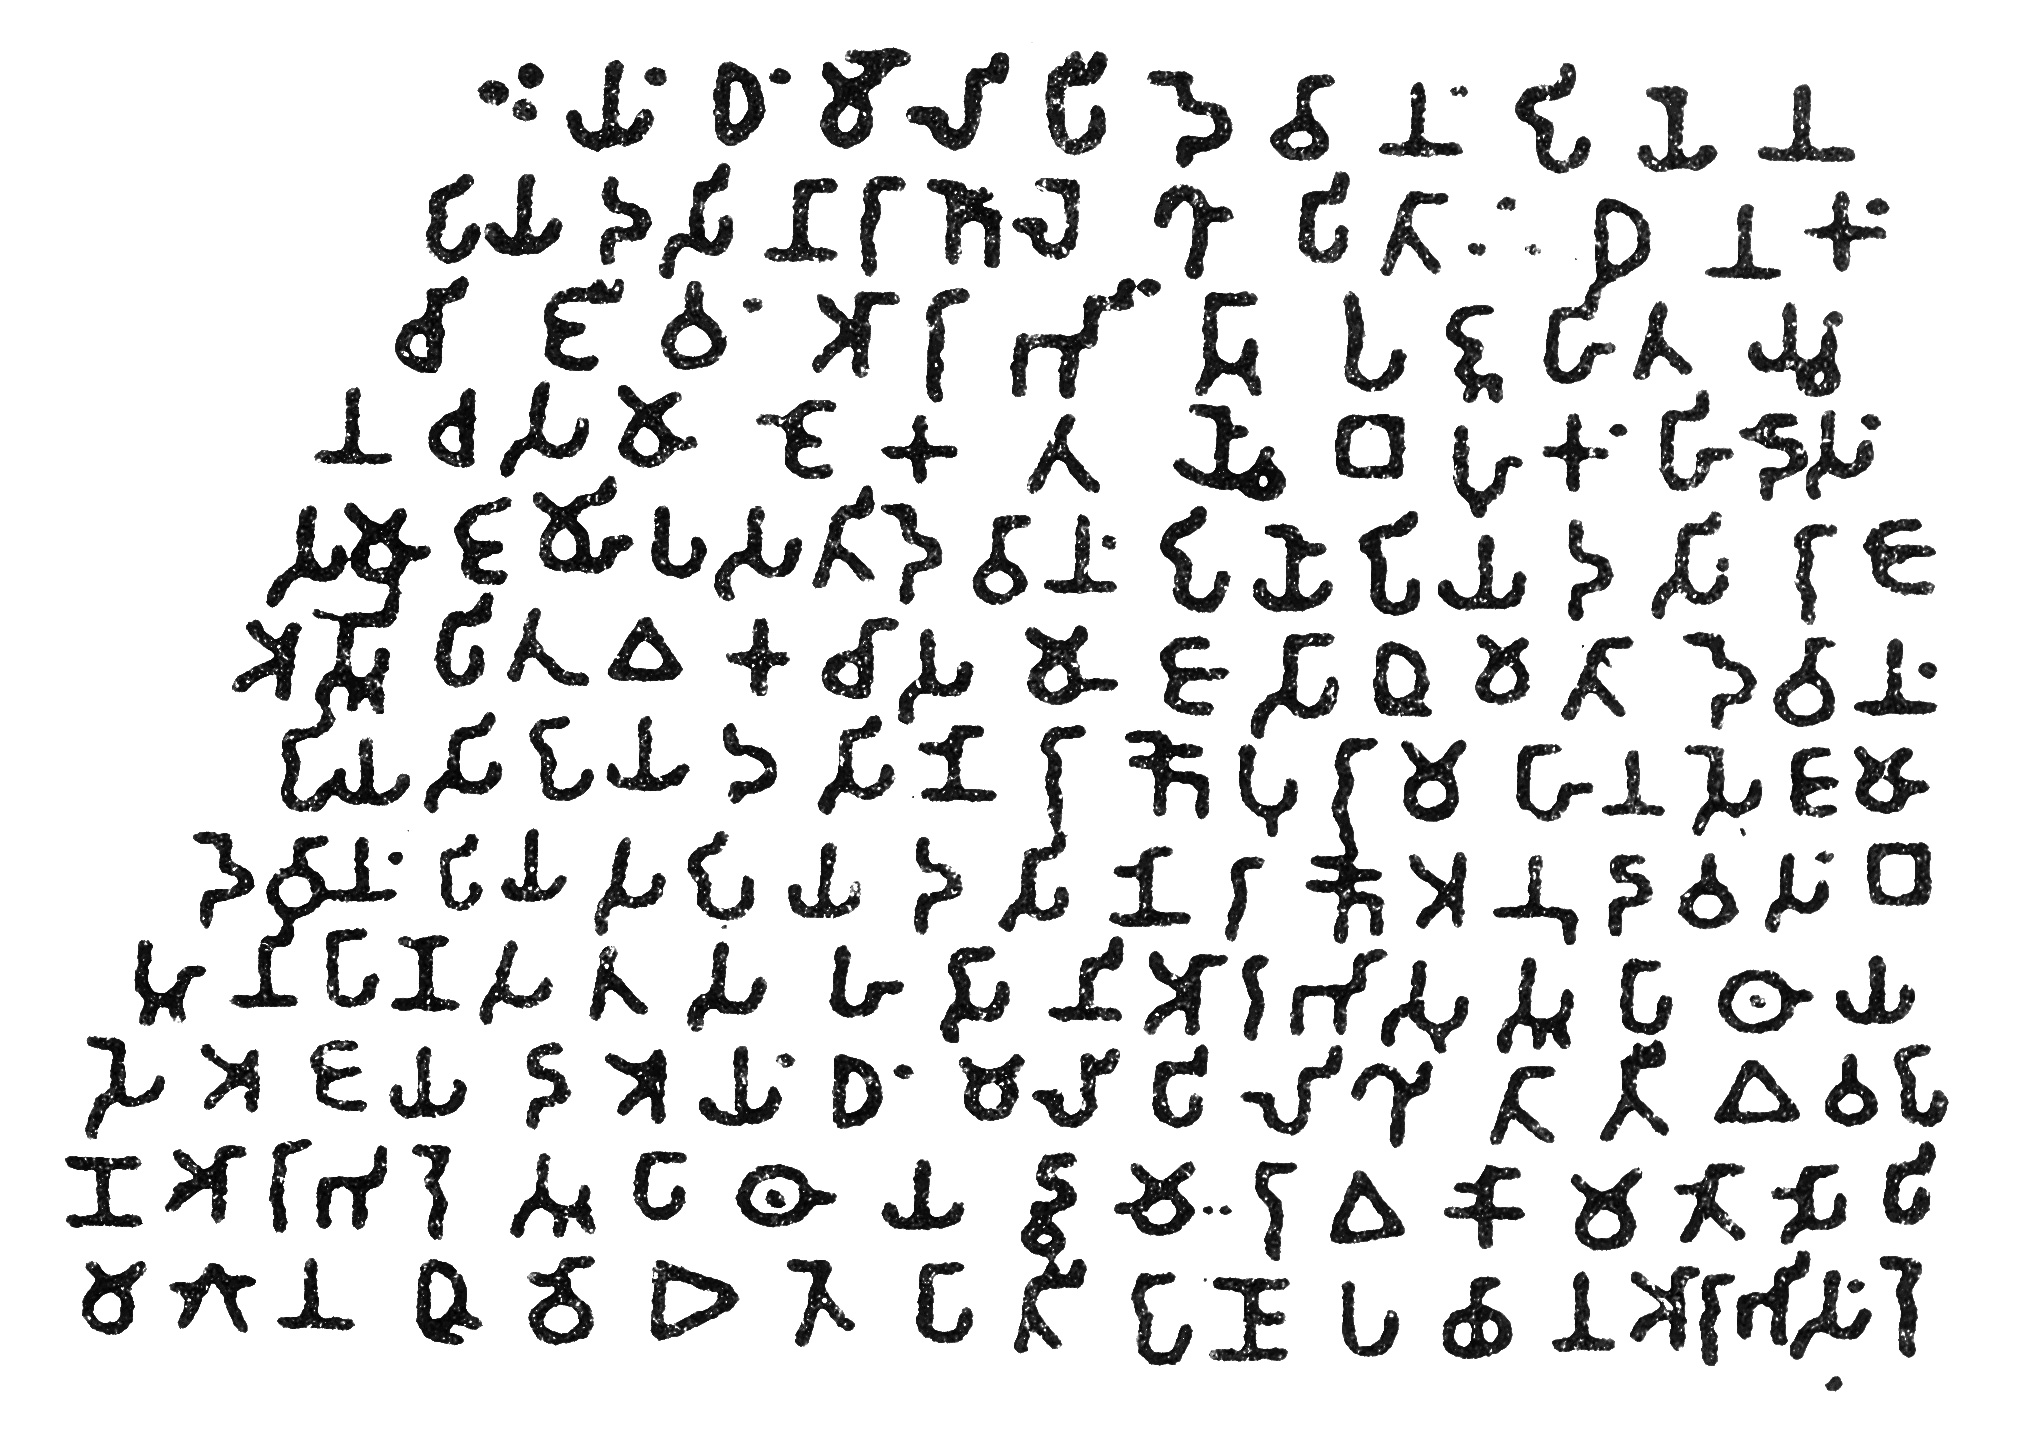 𑀇𑀬𑀁 𑀥𑀁𑀫𑀮𑀺𑀧𑀻 𑀤𑁂𑀯𑀸𑀦𑀁𑀧𑁆𑀭𑀺𑀬𑁂𑀦
𑀧𑁆𑀭𑀺𑀬𑀤𑀲𑀺𑀦𑀸 𑀭𑀸𑀜𑀸 𑀮𑁂𑀔𑀸𑀧𑀺𑀢𑀸 𑀇𑀥 𑀦 𑀓𑀺𑀁
𑀘𑀺 𑀚𑀻𑀯𑀁 𑀆𑀭𑀪𑀺𑀢𑁆𑀧𑀸 𑀧𑁆𑀭𑀚𑀽𑀳𑀺𑀢𑀯𑁆𑀬𑀁
𑀦 𑀘 𑀲𑀫𑀸𑀚𑁄 𑀓𑀢𑀯𑁆𑀬𑁄 𑀩𑀳𑀼𑀓𑀁 𑀳𑀺 𑀤𑁄𑀲𑀁
𑀲𑀫𑀸𑀚𑀫𑁆𑀳𑀺 𑀧𑀲𑀢𑀺 𑀤𑁂𑀯𑀸𑀦𑀁𑀧𑁆𑀭𑀺𑀬𑁄 𑀧𑁆𑀭𑀺𑀬𑀤𑀲𑀺 𑀭𑀸𑀚𑀸
𑀅𑀲𑁆𑀢𑀺 𑀧𑀺 𑀢𑀼 𑀏𑀓𑀘𑀸 𑀲𑀫𑀸𑀚𑀸 𑀲𑀸𑀥𑀼𑀫𑀢𑀸 𑀤𑁂𑀯𑀸𑀦𑀁
𑀧𑁆𑀭𑀺𑀬𑀲 𑀧𑁆𑀭𑀺𑀬𑀤𑀲𑀺𑀦𑁄 𑀭𑀸𑀜𑁄 𑀧𑀼𑀭𑀸 𑀫𑀳𑀸𑀦𑀲𑀫𑁆𑀳𑀺
𑀤𑁂𑀯𑀸𑀦𑀁𑀧𑁆𑀭𑀺𑀬𑀲 𑀧𑁆𑀭𑀺𑀬𑀤𑀲𑀺𑀦𑁄 𑀭𑀸𑀜𑁄 𑀅𑀦𑀼𑀤𑀺𑀯𑀲𑀁 𑀩
𑀳𑀽𑀦𑀺 𑀧𑁆𑀭𑀸𑀡𑀲𑀢𑀲𑀳𑀲𑁆𑀭𑀸𑀦𑀺 𑀆𑀭𑀪𑀺𑀲𑀼 𑀲𑀽𑀧𑀸𑀣𑀸𑀬
𑀲𑁂 𑀅𑀚 𑀬𑀤𑀸 𑀅𑀬𑀁 𑀥𑀁𑀫𑀮𑀺𑀧𑀻 𑀮𑀺𑀔𑀺𑀢𑀸 𑀢𑀻 𑀏𑀯 𑀧𑁆𑀭𑀸
𑀡𑀸 𑀆𑀭𑀪𑀭𑁂 𑀲𑀽𑀧𑀸𑀣𑀸𑀬 𑀤𑁆𑀯𑁄 𑀫𑁄𑀭𑀸 𑀏𑀓𑁄 𑀫𑀕𑁄 𑀲𑁄 𑀧𑀺
𑀫𑀕𑁄 𑀦 𑀥𑀼𑀯𑁄 𑀏𑀢𑁂 𑀧𑀺 𑀢𑁆𑀭𑀻 𑀧𑁆𑀭𑀸𑀡𑀸 𑀧𑀙𑀸 𑀦 𑀆𑀭𑀪𑀺𑀲𑀁𑀭𑁂